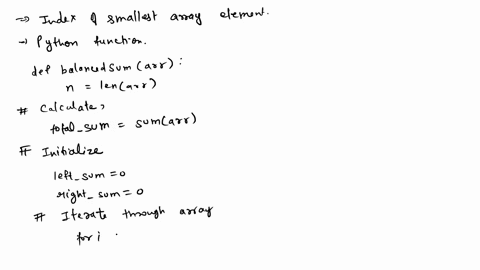 ⇒ Index of smallest array element.
→ Python function.
def balancedSum (arr) :
n = len(arr)
# Calculate,
total_sum = sum(arr)
# Initialize
left_sum = 0
right_sum = 0
# Iterate through array
for i .